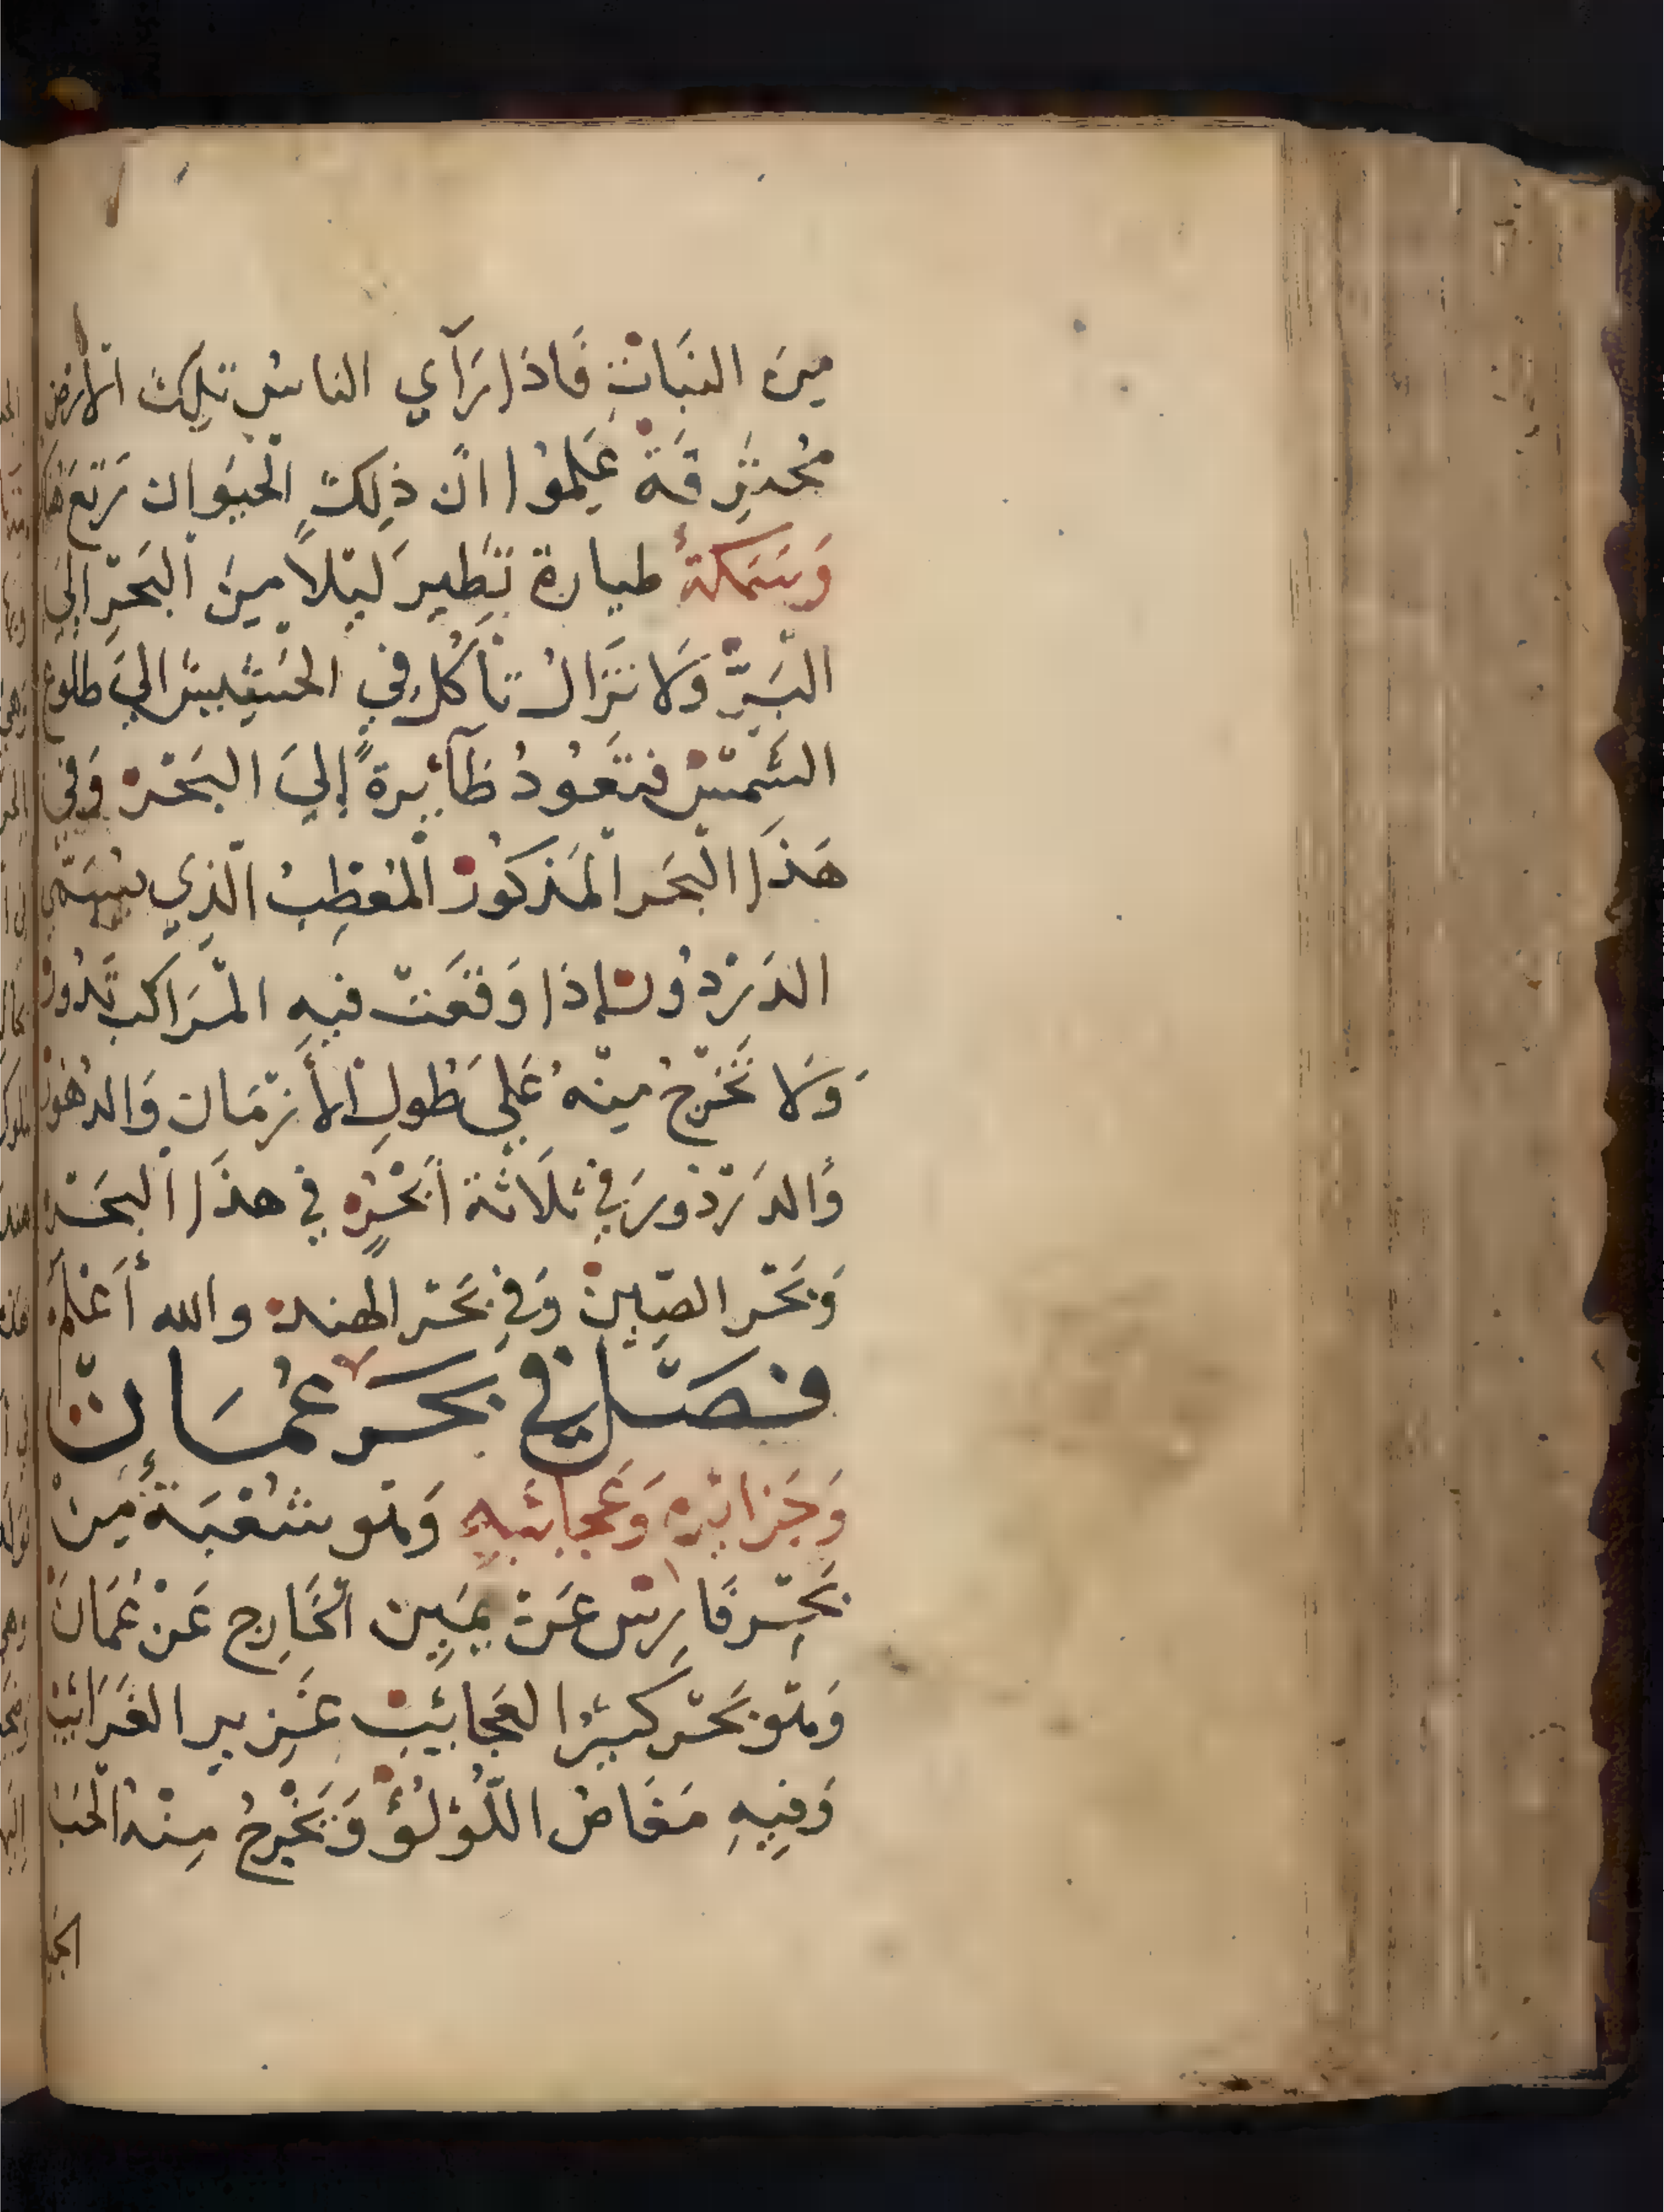 مِنَ النَبَاتْ فَاذَا رَآي الناسُ تلكَ الأرض
مُحتَرِقَةْ عَلِمُوا انَّ ذلِكَ الحيَوان رَتَعَ هُنَاكَ
وَسَمَكةٌ طيارة تَطير لَيْلاً مِنَ البَحَرِ الَيَ
البَرِّ وَلَا تَزَالُ تأكُل في الحَشِيش اليَ طلوع
الشَمْسْ فتَعُودُ طَآئِرةً إليَ البَحْرْ وَفي
هَذَا البَحَر المَذكُورْ المُعَطِبُ الَّذِي يُسَمّي
الدَرْدُورْ إذا وَقَعَتْ فيهِ المَرَاكب تَدُورْ
وَلَا تَخْرُجُ مِنْهُ عَلي طُولِ الأَزْمَان وَالدُهُورْ
وَالدَرْدُورَ في ثلَاثة أَبْحُرٍ في هذَا البَحَرْ
وَبَحْر الصِّينْ وَفي بَحْر الهندْ والله أَعْلَمْ
فصَّل في بحَر عُمَانْ
وَجَزائِرِهِ وَعَجائبِهِ وَهو شُعْبَةٌ مِنْ
بَحِرْ فَارِسْ عَنْ يَمِين الخَارِج عَنْ عُمَانَ
وَهْوَ بَحْر كبيرُ العَجائِبْ غَزير الغَرَائِبْ
وَفِيهِ مَغَاصُ اللُّؤلُؤْ وَيَخْرُجُ مِنْهُ الحَبُ
الجَيد